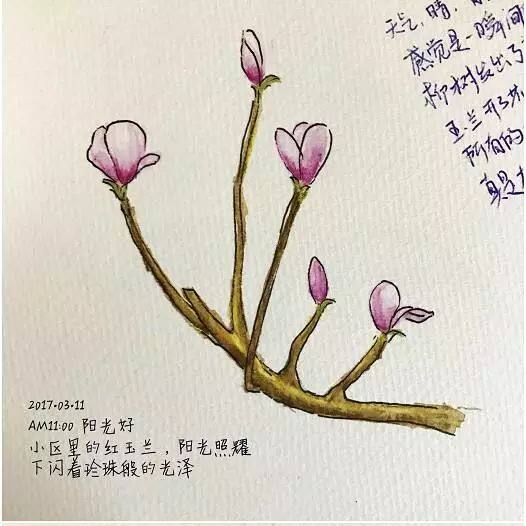 天气,晴,
感觉是一瞬间
柳树发出了
玉兰开了
所有的
真是
2017·03·11
AM11:00 阳光好
小区里的红玉兰，阳光照耀
下闪着珍珠般的光泽